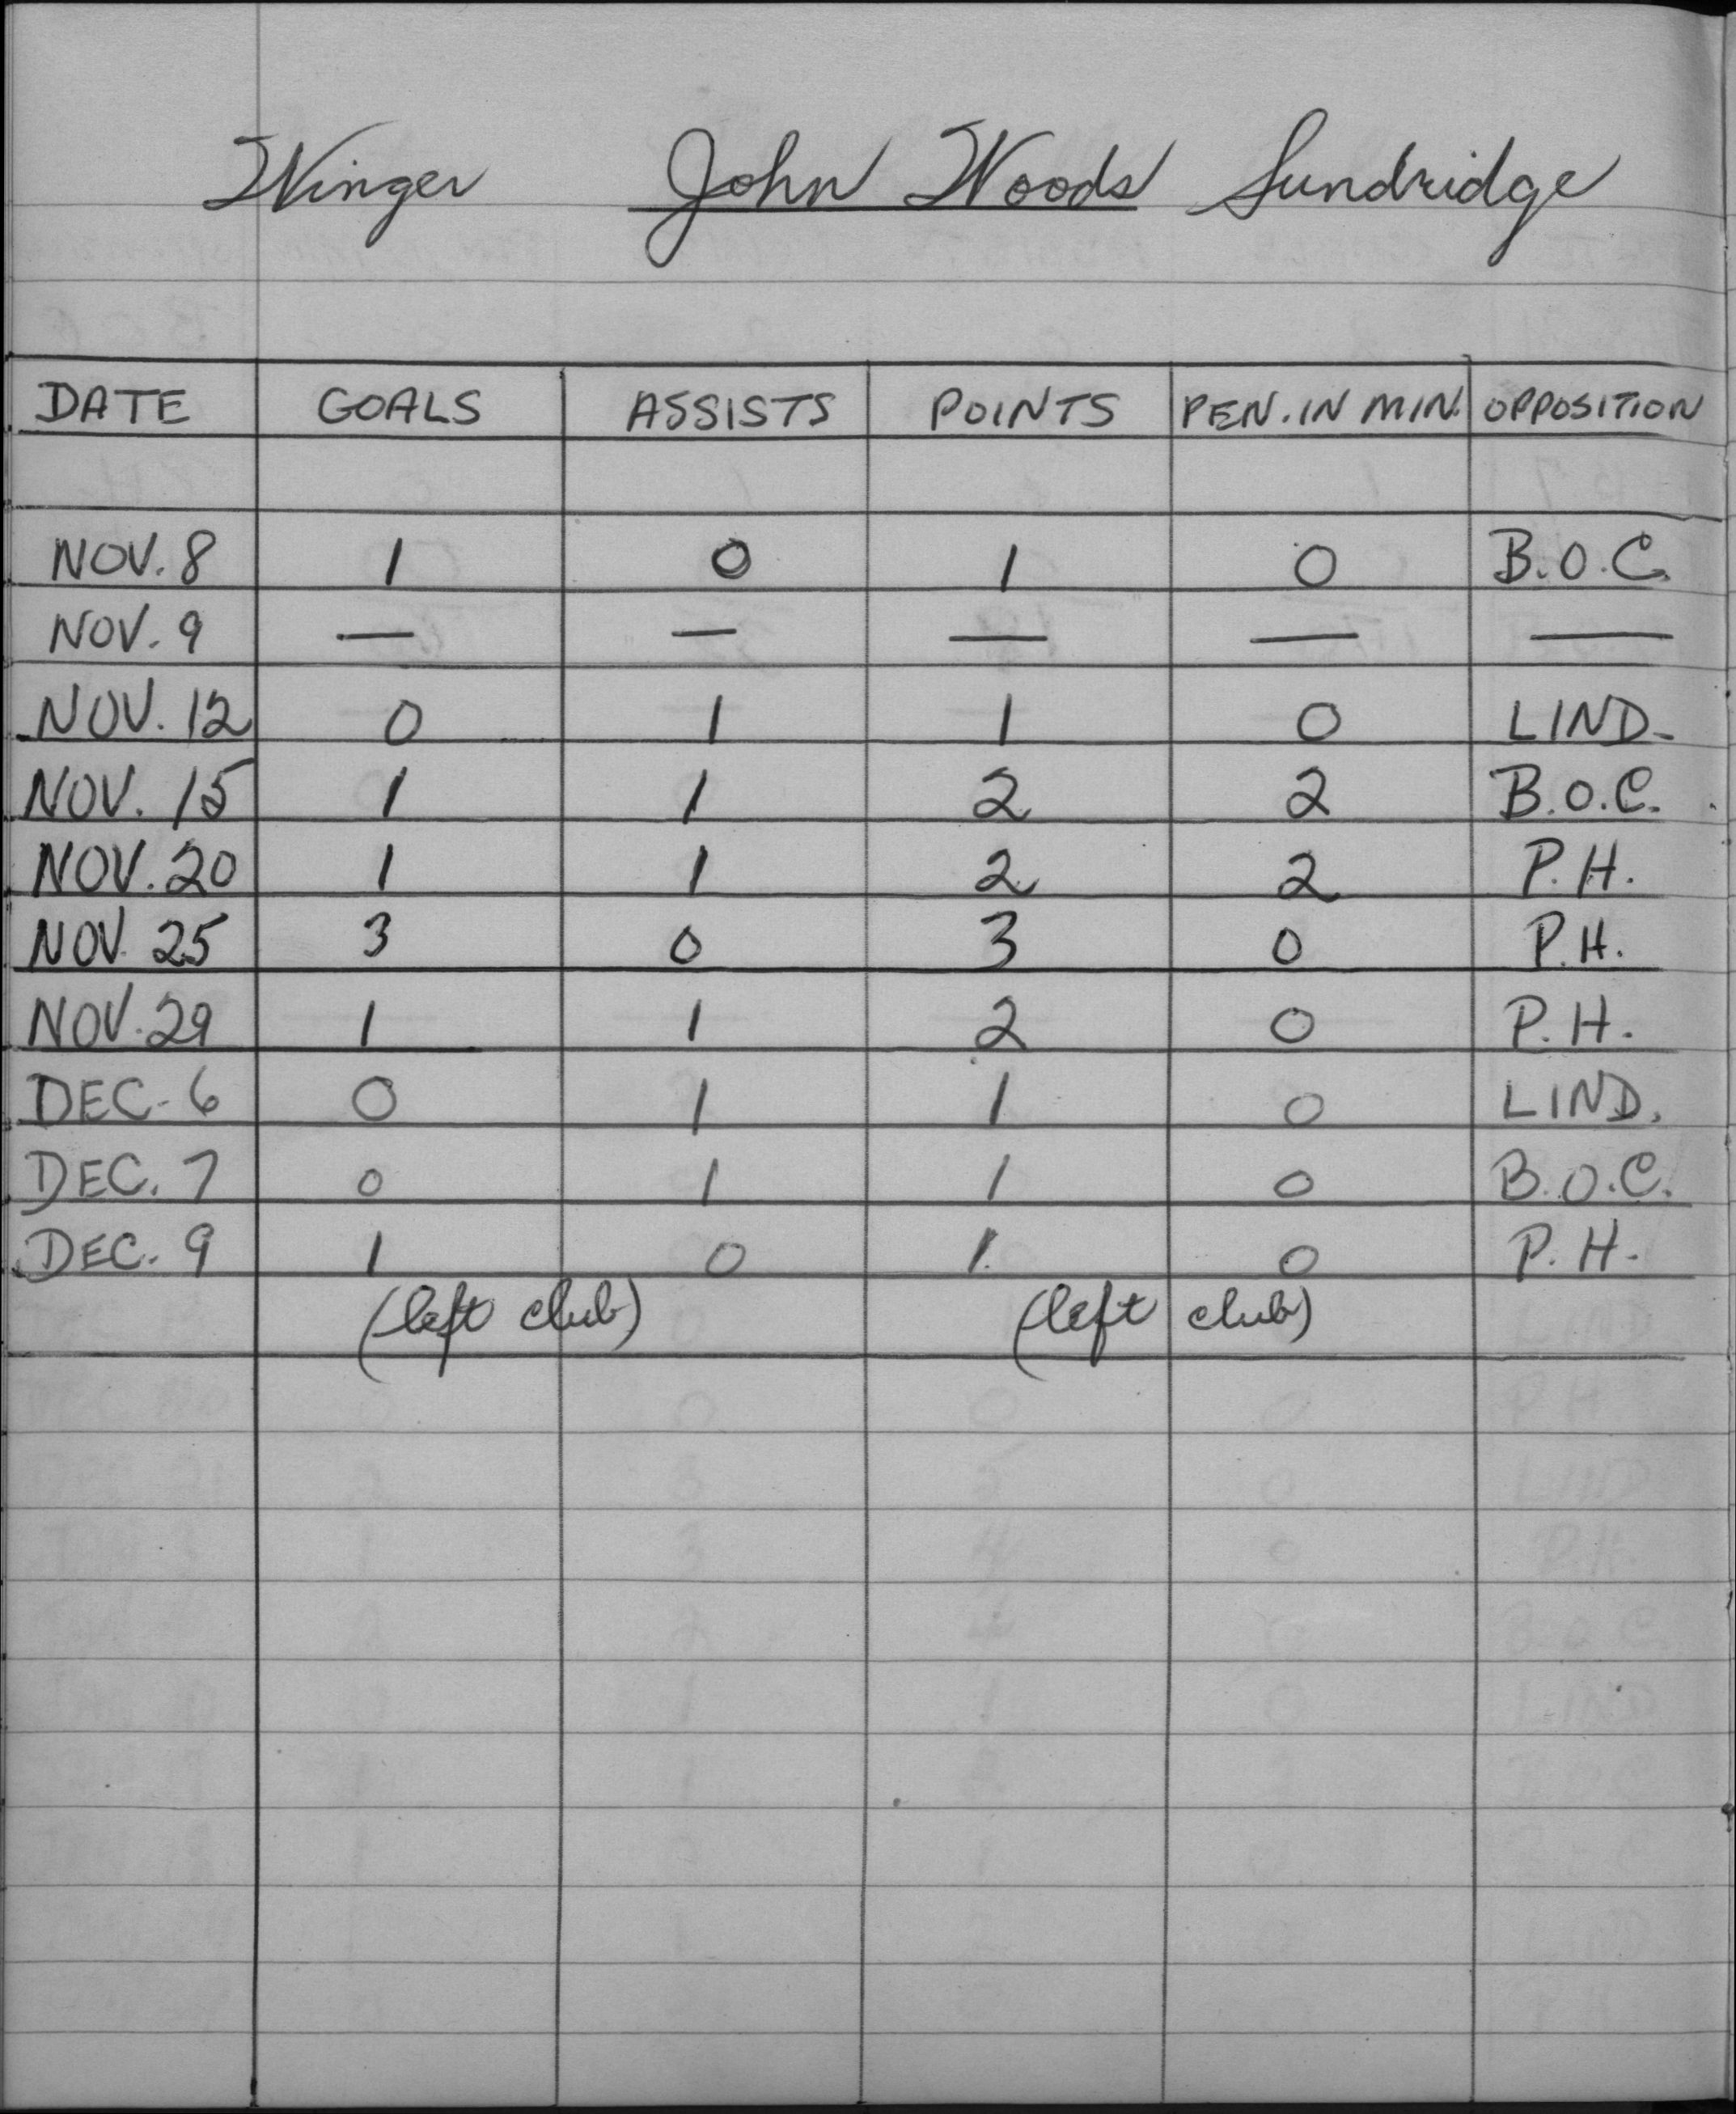 Winger John Woods Sundridge
DATE GOALS ASSISTS POINTS PEN. IN MIN. OPPOSITION
NOV. 8 1 0 1 0 B.O.C.
NOV. 9 — — — — —
NOV. 12 0 1 1 0 LIND.
NOV. 15 1 1 2 2 B.O.C.
NOV. 20 1 1 2 2 P.H.
NOV. 25 3 0 3 0 P.H.
NOV. 29 1 1 2 0 P.H.
DEC. 6 0 1 1 0 LIND.
DEC. 7 0 1 1 0 B.O.C.
DEC. 9 1 0 1 0 P.H.
(left club) (left club)